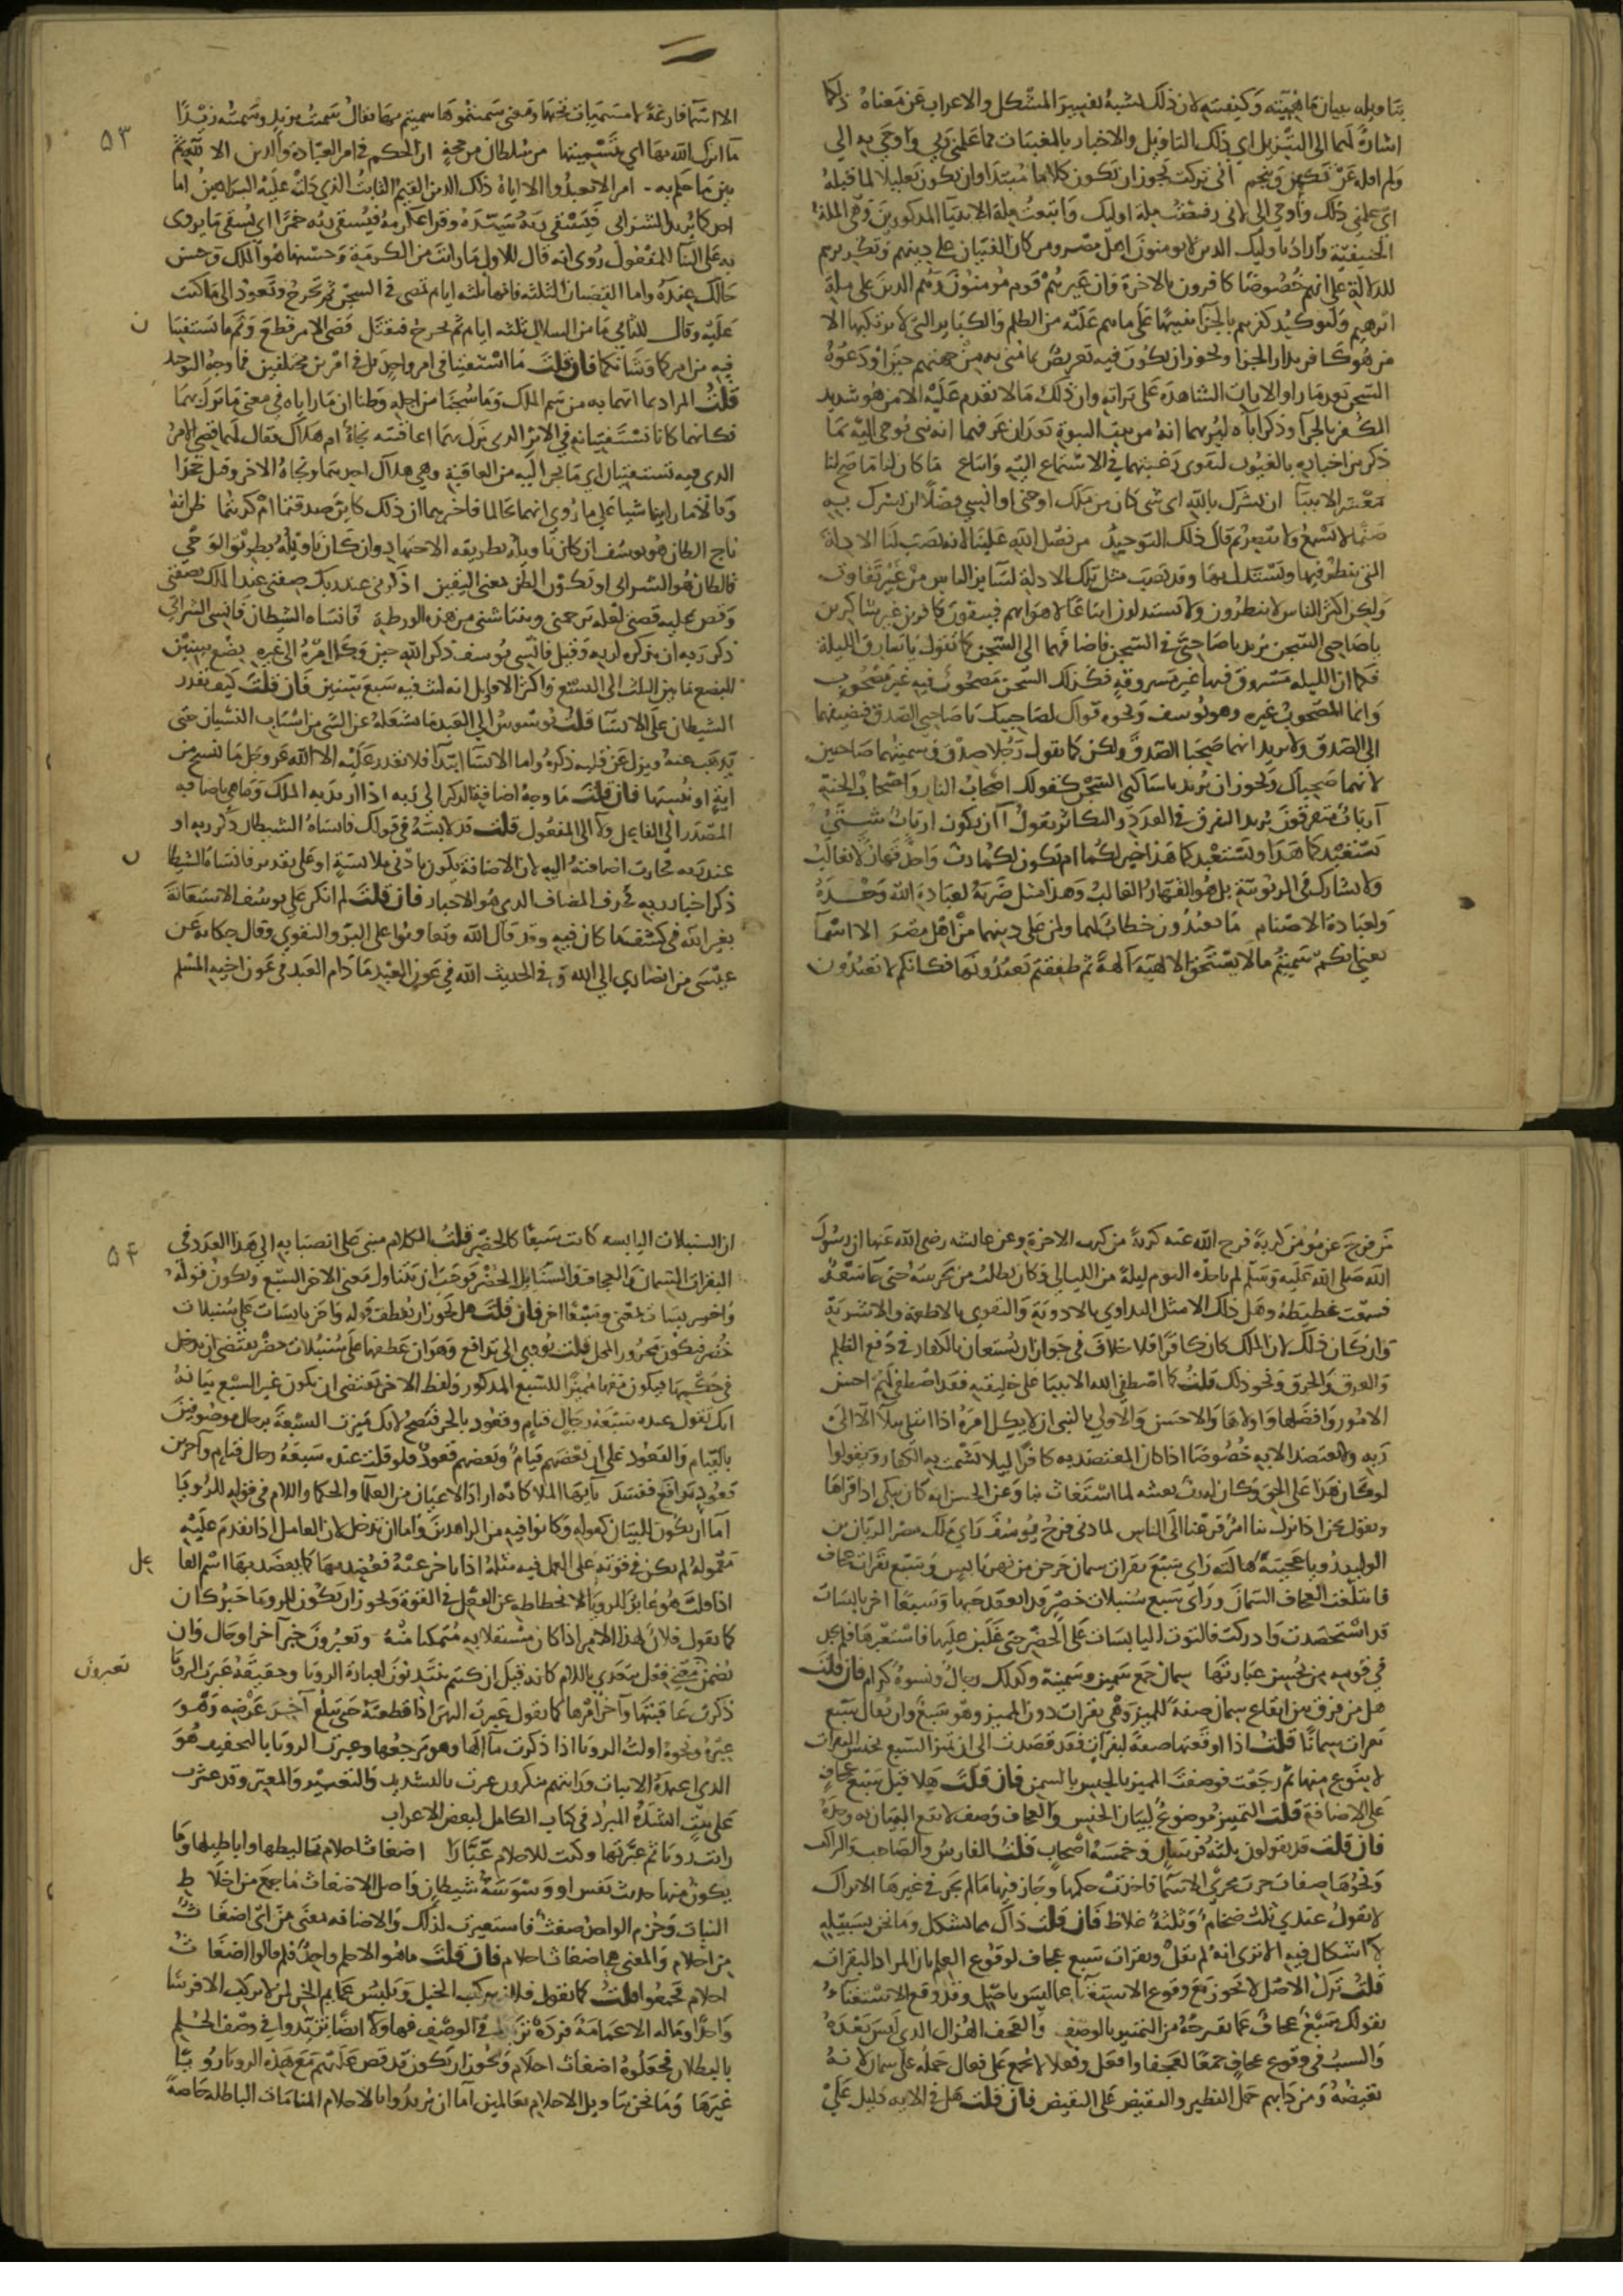 بتاويله ببيان ماهيته وكيفيته لان ذلك يشبه تفسير المشكل والاعراب عن معناه ذلكما
اشارة لهما الى التنزيل اي ذلك التاويل والاخبار بالمغيبات مما علمني ربي واوحي به الي
ولم اقله عن تكهن وتنجم اني تركت يجوز ان يكون كلاما مبتدا وان يكون تعليلا لما قبله
اي علمني ذلك واوحي الي لاني رفضت ملة اوليك واتبعت ملة الانبيآ المذكورين وهي الملة
الحنيفية واراد باوليك الذين لا يومنون اهل مصر ومن كان الفتيان على دينهم وتكريرهم
للدلالة على انهم خصوصا كافرون بالاخرة وان غيرهم قوم مؤمنون وهم الذين على ملة
ابرهيم ولتوكيد كفرهم بالجزآ تنبيها على ما هم عليه من الظلم والكباير التي لا يرتكبها الا
من هو كافر بدار الجزا ويجوز ان يكون فيه تعريض بما مني به من جهتهم حين اودعوه
السجن بعد ما راوا الايات الشاهدة على براته وان ذلك ما لا يقدم عليه الا من هو شديد
الكفر بالجزآ وذكر آباه ليريهما انه من بيت النبوة بعد ان عرفهما انه نبي يوحى اليه بما
ذكر من اخباره بالغيوب ليقوي رغبتهما في الاستماع اليه واتباع ما كان لنا ما صح لنا
معشر الانبيآ ان نشرك بالله اي شي كان من ملك او جني او انسي فضلا ان نشرك به
صنما لا يسمع ولا يبصر ثم قال ذلك التوحيد من فضل الله علينا لانه نصب لنا الادلة
التي ننظر فيها ونستدل بها وقد نصب مثل تلك الادلة لساير الناس من غير تفاوت
ولكن اكثر الناس لا ينظرون ولا يستدلون اتباعا لاهوايهم فيبقون كافرين غير شاكرين
ياصاحبي السجن يريد ياصاحبي في السجن فاضافهما الى السجن كما تقول ياسارق الليلة
فكما ان الليلة مسروق فيها غير مسروقة فكذلك السجن مصحوب فيه غير مصحوب
وانما المصحوب غيره وهو يوسف ونحوه قولك لصاحبيك ياصاحبي الصدق فتضيفهما
الى الصدق ولا تريد انهما صحبا الصدق ولكن كما تقول رجلا صدق وسميتهما صاحبين
لانهما صحباك ويجوز ان يريد ياساكني السجن كقولك اصحاب النار واصحاب الجنة
آرباب متفرقون يريد التفرق في العدد والتكاثر يقول آ ان يكون ارباب شتى
يستعبدكما هذا ويستعبدكما هذا خير لكما ام يكون لكما رب واحد قهار لا يغالب
ولا يشارك في الربوبية بل هو القهار الغالب وهذا مثل ضربه لعبادة الله وحده
ولعبادة الاصنام ما تعبدون خطاب لهما ولمن على دينهما من اهل مصر الا اسمآ
يعني انكم سميتم ما لا يستحق الالهية آلهة ثم طفقتم تعبدونها فكانكم لا تعبدون
٥٣
الا اسمآ فارغة لا مسميات تحتها ومعنى سميتموها سميتم بها يقال سميته بزيد وسميته زيدا
ما انزل الله بها اي بتسميتها من سلطان من حجة ان الحكم في امر العبادة والدين الا لله ثم
بين ما حكم به امر الا تعبدوا الا اياه ذلك الدين القيم الثابت الذي دلت عليه البراهين اما
احدكما يريد الشرابي فيسقي ربه سيده وقرا عكرمة فيسقي ربه خمرا اي يسقى ما يروى
به على البنآ للمفعول روي انه قال للاول ما رايت من الكرمة وحسنها هو الملك وحسن
حالك عنده واما القضبان الثلثة فانها ثلثة ايام تمضي في السجن ثم تخرج وتعود الى ما كنت
عليه وقال للثاني ما من السلال ثلثه ايام ثم تخرج فتقتل قضى الامر قطع وتم ما تستفتيا ن
فيه من امركما وشانكما فان قلت ما استفتيا في امر واحد بل في امرين مختلفين فما وجه التوحد
قلت المراد بما اتهما به من سم الملك وما سجنا من اجله وظنا ان ما راياه في معنى ما نزل بهما
فكانهما كانا يستفتيانه في الامر الذي نزل بهما اعاقبته نجاة ام هلاك فقال لهما قضي الامر
الذي فيه تستفتيان اي ما يجر اليه من العاقبة وهي هلاك احدهما ونجاة الاخر وقيل تحزا
وقالا ما راينا شيا على ما روي انهما تحالما فاخبرهما ان ذلك كاين صدقتما ام كذبتما ظن انه
ناج الظان هو يوسف ان كان تاويله بطريقه الاجتهاد وان كان تاويله بطريق الوحي
فالظان هو الشرابي او يكون الظن بمعنى اليقين اذكرني عند ربك صفني عند الملك بصفتي
وقص عليه قصتي لعله يرحمني وينتاشني من هذه الورطة فانساه الشيطان فانسي الشرابي
ذكر ربه ان يذكره لربه وقيل فانسي يوسف ذكر الله حين وكل امره الى غيره بضع سنين
البضع ما بين الثلث الى التسع واكثر الاقاويل انه لبث فيه سبع سنين فان قلت كيف يقدر
الشيطان على الانسآ قلت يوسوس الى العبد ما يشغله عن الشي من اسباب النسيان حتى
يذهب عنه ويزل عن قلبه ذكره واما الانسآ ابتدآ فلا يقدر عليه الا الله عز وجل ما ننسخ من
اية او ننسها فان قلت ما وجه اضافة الذكر الى ربه اذا اريد به الملك وما هي باضافة
المصدر الى الفاعل ولا الى المفعول قلت قد لابسه في قولك فانساه الشيطان ذكر ربه او
عند ربه فجازت اضافته اليه لان الاضافة يكون بادنى ملابسة او على تقدير فانساه الشيطا ن
ذكر اخبار ربه فحذف المضاف الذي هو الاخبار فان قلت لم انكر على يوسف الاستعانة
بغير الله في كشف ما كان فيه وقد قال الله وتعاونوا على البر والتقوى وقال حكاية عن
عيسى من انصاري الى الله وفي الحديث الله في عون العبد ما دام العبد في عون اخيه المسلم
من فرج عن مؤمن كربة فرج الله عنه كربة من كرب الاخرة وعن عايشة رضي الله عنها ان رسول
الله صلى الله عليه وسلم لم ياخذه النوم ليلة من الليالي وكان يطلب من يحرسه حتى جآ سعد
فسمعت غطيطه وهل ذلك الا مثل التداوي بالادوية والتقوي بالاطعمة والاشربة
وان كان ذلك لان الملك كان كافرا فلا خلاف في جواز ان يستعان بالكفار في دفع الظلم
والغرق والحرق ونحو ذلك قلت كما اصطفى الله الانبيا على خليقته فقد اصطفى لهم احسن
الامور وافضلها واولاها والاحسن والاولى بالنبي ان لا يكل امره اذا ابتلي ببلآ الا الى
ربه ولا يعتضد الا به خصوصا اذا كان المعتضد به كافرا ليلا يشمت به الكفار ويقولوا
لو كان هذا على الحق وكان له رب يغيثه لما استغاث بنا وعن الحسن انه كان يبكي اذا قراها
ويقول نحن اذا نزل بنا امر فزعنا الى الناس لما دنى فرج يوسف راى ملك مصر الريان بن
الوليد رؤيا عجيبة هالته راى سبع بقرات سمان خرجن من نهر يابس وسبع بقرات عجاف
فابتلعت العجاف السمان وراى سبع سنبلات خضر قد انعقد حبها وسبعا اخر يابسات
قد استحصدت وادركت فالتوت اليابسات على الخضر حتى غلبن عليها فاستعبرها فلم يجد
في قومه من يحسن عبارتها سمان جمع سمين وسمينة وكذلك رجال ونسوة كرام فان قلت
هل من فرق بين ايقاع سمان صفة للمميز وهي بقرات دون المميز وهو سبع وان يقال سبع
بقرات سمانا قلت اذا اوقعتها صفة لبقرات فقد قصدت الى ان تميز السبع بجنس البقرات
لا بنوع منها ثم رجعت فوصفت المميز بالجنس بالسمن فان قلت هلا قيل سبع عجاف
على الاضافة قلت التمييز موضوع لبيان الجنس والعجاف وصف لا يقع البيان به وحده
فان قلت قد يقولون ثلثة فرسان وخمسة اصحاب قلت الفارس والصاحب والراكب
ونحوها صفات جرت مجرى الاسمآ فاخذت حكمها وجاز فيها ما لم يجز في غيرها الا تراك
لا تقول عندي ثلثة ضخام وثلثة غلاظ فان قلت ذاك مما يشكل وما نحن بسبيله
لا اشكال فيه الا ترى انه لم يقل وبقرات سبع عجاف لوقوع العلم بان المراد البقرات
قلت ترك الاصل لا يجوز مع وقوع الاستغنآ عما ليس باصل وقد وقع الاستغنآ
بقولك سبع عجاف عما تقترحه من التمييز بالوصف والعجف الهزال الذي ليس بعده
والسبب في وقوع عجاف جمعا لعجفا وافعل وفعلا لا يجمع على فعال حمله على سمان لانه
نقيضه ومن دابهم حمل النظير والنقيض على النقيض فان قلت هل في الايه دليل على
٥٤
ان السنبلات اليابسه كانت سبعا كالخضر قلت الكلام مبني على انصبابه الى هذا العدد في
البقرات السمان والعجاف والسنابل الخضر فوجب ان يتناول معنى الاخر السبع ويكون قوله
واخر يبسات بمعنى وسبعا اخر فان قلت هل يجوز ان يعطف قوله واخر يابسات على سنبلات
خضر فيكون مجرور المحل قلت يودي الى تدافع وهو ان عطفها على سنبلات خضر يقتضي ان يدخل
في حكمها فيكون معها مميزا للسبع المذكور ولفظ الاخر يقتضي ان يكون غير السبع بيانه
انك تقول عنده سبعة رجال قيام وقعود بالجر فيصح لانك ميزت السبعة برجال موصوفين
بالقيام والقعود على ان بعضهم قيام وبعضهم قعود فلو قلت عنده سبعة رجال قيام وآخرين
قعود تدافع ففسد يآيها الملا كانه اراد الاعيان من العلمآ والحكما واللام في قوله للرؤيا
اما ان تكون للبيان كقوله وكانوا فيه من الزاهدين واما ان تدخل لان العامل اذا تقدم عليه
معموله لم يكن في قوته على العمل فيه مثله اذا تاخر عنه فعضد بها كما يعضد بها اسم الفا عل
اذا قلت هو عابر للرويا لانحطاطه عن الفعل في القوة ويجوز ان يكون للرويا خبر كان
كما تقول فلان لهذا الامر اذا كان مستقلا به متمكنا منه وتعبرون خبر آخر او حال وان
يضمن معنى فعل يتعدى باللام كانه قيل ان كنتم تنتدبون لعبارة الرويا وحقيقة عبرت الرويا
تعبرون
ذكرت عاقبتها وآخر امرها كما تقول عبرت النهر اذا قطعته حتى تبلغ آخر عرضه وهو
عبره ونحوه اولت الرويا اذا ذكرت مآلها وهو مرجعها وعبرت الرويا بالتخفيف هو
الذي اعتمده الاثبات ورايتهم ينكرون عبرت بالتشديد والتعبير والمعبر وقد عثرت
على بيت انشده المبرد في كتاب الكامل لبعض الاعراب
رايت رويا ثم عبرتها وكنت للاحلام عبارا اضغاث احلام تخاليطها واباطيلها وما
يكون منها حديث نفس او وسوسة شيطان واصل الاضغاث ما جمع من اخلا ط
النبات وحزم الواحد ضغث فاستعيرت لذلك والاضافه بمعنى من اي اضغا ث
من احلام والمعنى هي اضغاث احلام فان قلت ما هو الا حلم واحد فلم قالوا اضغا ث
احلام فجمعوا قلت كما تقول فلان يركب الخيل ويلبس عمايم الخز لمن لا يركب الا فرسا
واحدا وما له الا عمامة فردة تزيدا في الوصف فهاولآ ايضا تزيدوا في وصف الحلم
بالبطلان فجعلوه اضغاث احلام ويجوز ان يكون قد قص عليهم مع هذه الرويا رويا
غيرها وما نحن بتاويل الاحلام بعالمين اما ان يريدوا بالاحلام المنامات الباطله خاصة